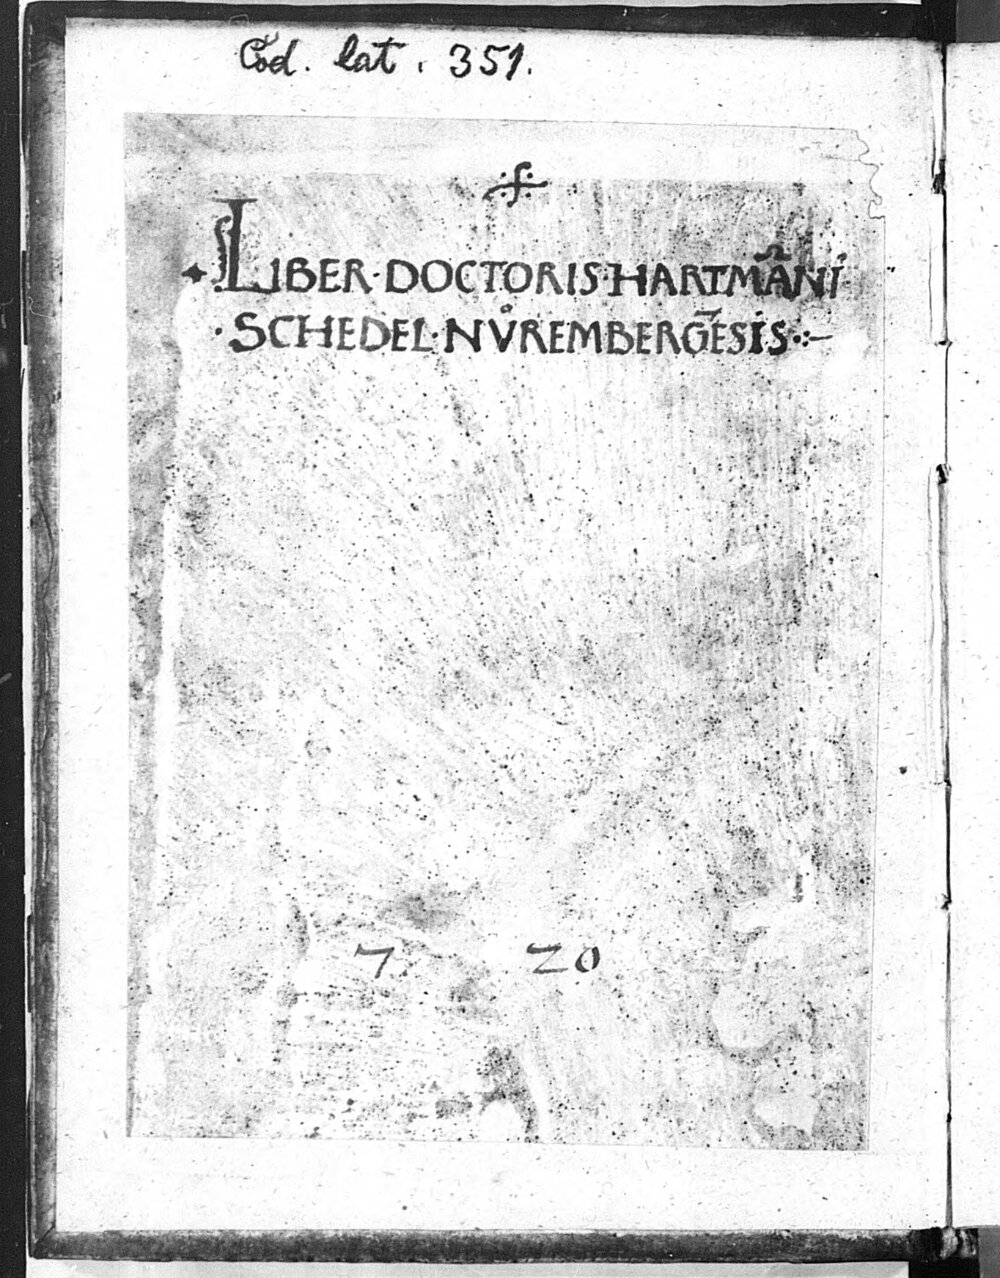 Cod. lat. 351.
LIBER·DOCTORIS·HARTMA̅NI
·SCHEDEL·NŮREMBERGE̅SIS·:-
7 20